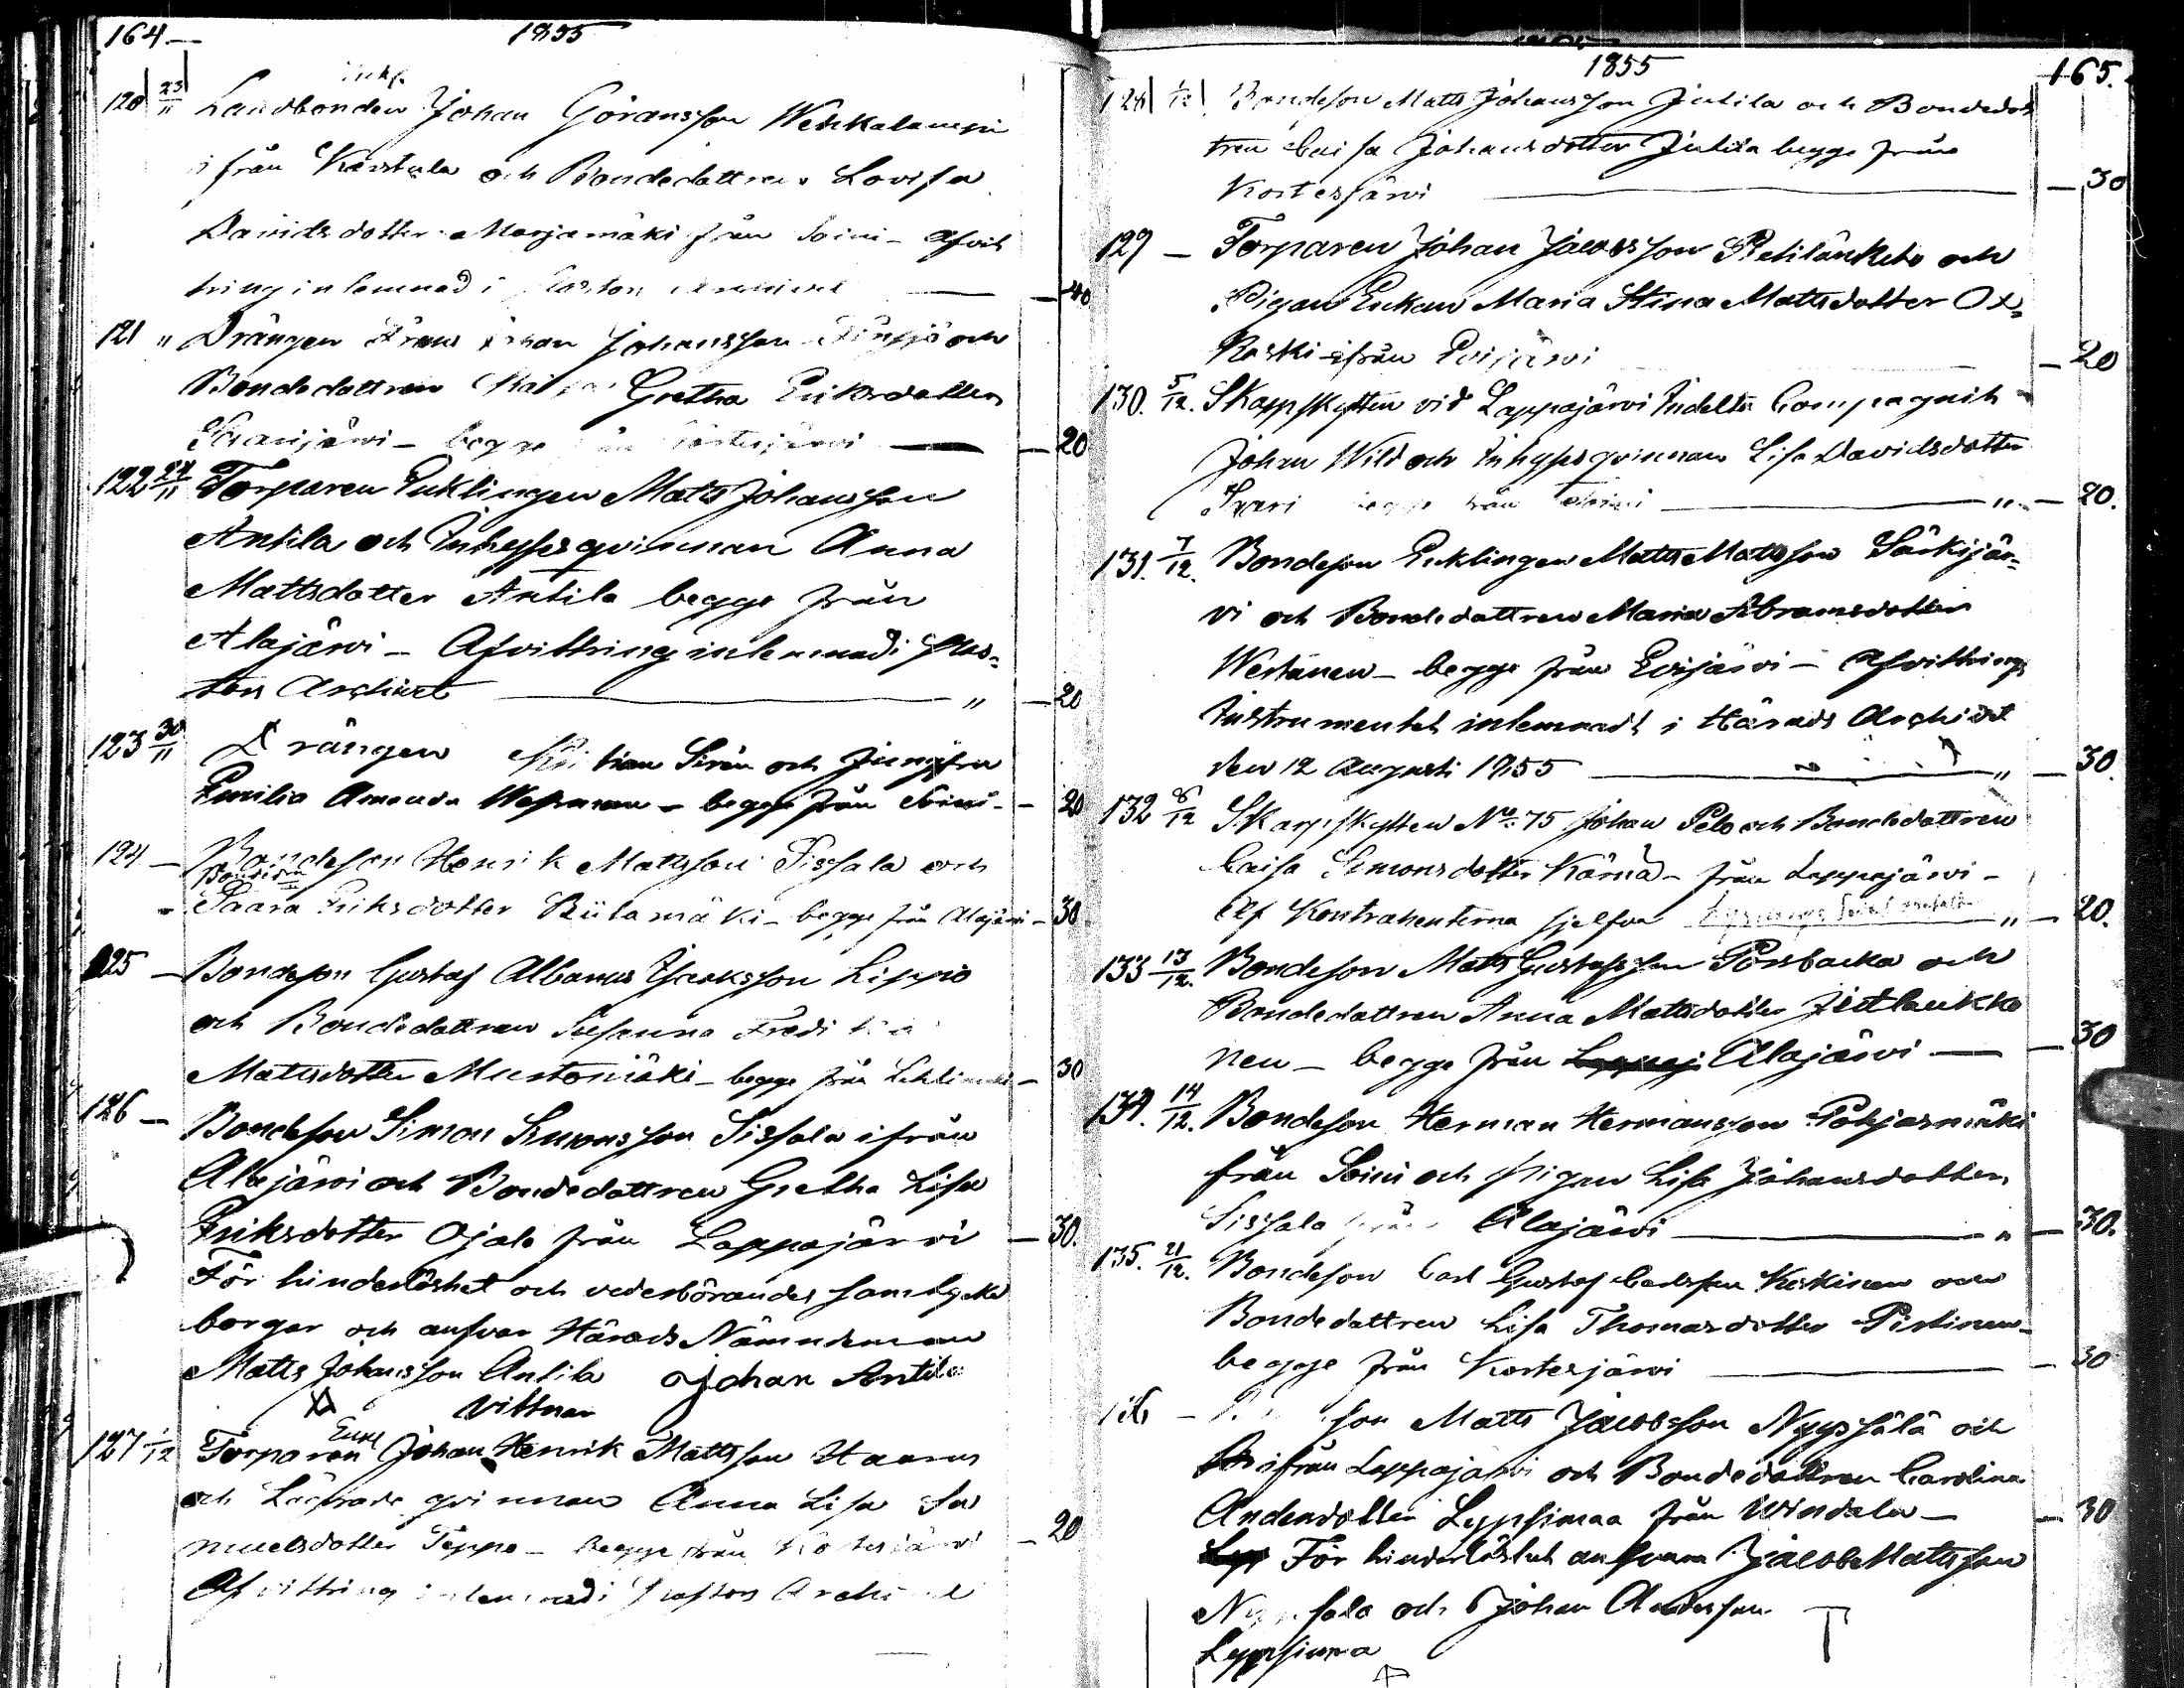 164.
1855
120 23/11 Landbonden Johan Göransson
ifrån Karstula och Bondedottren Lovisa
Davidsdotter Marjamäki från Soini - Afvit
tring inlemnad i Pastors Archivet — 40
121 " Drängen Johan Johansson och
Bondedottren Maija Gretha Eriksdotter
begge från Kortesjärvi — 20
122 24/11 Torparen Enklingen Matts Johansson
Antila och Inhysesqvinnan Anna
Mattsdotter Antila begge från
Alajärvi - Afvittring inlemnad i Pas-
tors Archivet — " — 20
123 30/11 Drängen Sirén och Jungfru
Emilia Amanda - begge från Soini - 20
124 - Bondeson Henrik Mattsson Sissala och
Bonded:n
Saara Eriksdotter Riitamäki - begge från Alajärvi - 30
125 - Bondeson Gustaf Albanus Jacksson Lippio
och Bondedottren Susanna Fredrika
Mattsdotter Mustomäki - begge från - 30
126 - Bondeson Simon Simonsson Sissala ifrån
Alajärvi och Bondedottren Gretha Lisa
Eriksdotter Ojala från Lappajärvi - 30.
För hinderlöshet och vederbörandes samtycke
borgar och ansvar Härads Nämndeman
Matts Johansson Antila Johan Antila
vittnar
127 1/12 Torparen Enkl Johan Henrik Mattsson
och Lägrade qvinnan Anna Lisa Sa
muelsdotter Teppo - begge från Kortesjärvi - 20
Afvittring inlemnad i Pastors Archivet
165.
1855
128 1/12 Bondeson Matts Johansson Jutila och Bondedott
tren Caisa Johansdotter Jutila begge från
Kortesjärvi — 30
129 - Torparen Johan Jacobsson och
Pigan Enkan Maria Stina Mattsdotter Ox-
koski ifrån Evijärvi — 20
130. 5/12. Skarpskytten vid Lappajärvi Indelta Compagnie
Johan Wild och Inhysesqvinnan Lisa Davidsdotter
Saari begge från Soini — " — 20.
131. 7/12. Bondeson Enklingen Matts Mattsson Särkijär-
vi och Bondedottren Maria Abramsdotter
Wertanen - begge från Evijärvi - Afvittrings
Instrumentet inlemnadt i Härads Archivet
den 12 Augusti 1855 — " — 30.
132 8/12 Skarpskytten No: 75 Johan Pelo och Bondedottren
Caisa Simonsdotter Kärnä - från Lappajärvi -
Af Kontrahenterna sjelfva — " — 20.
133 13/12. Bondeson Matts Gustafsson Pörsbacka och
Bondedottren Anna Mattsdotter
nen - begge från Alajärvi — 30
134. 14/12. Bondeson Herman Hermansson Pohjasmäki
från Soini och Pigan Lisa Johansdotter
Sissala från Alajärvi — " — 30.
135. 21/12. Bondeson Carl Gustaf Carlsson Keskinen och
Bondedottren Lisa Thomasdotter Pistinen -
begge från Kortesjärvi — 30
136 - Bondeson Matts Jacobsson Nyyssälä och
ifrån Lappajärvi och Bondedottren Carolina
Andersdotter Lypsimaa från Windala - 30
För hinderlöshet ansvara Jacob Mattsson
Nyyssälä och Johan Andersson
Lypsimaa